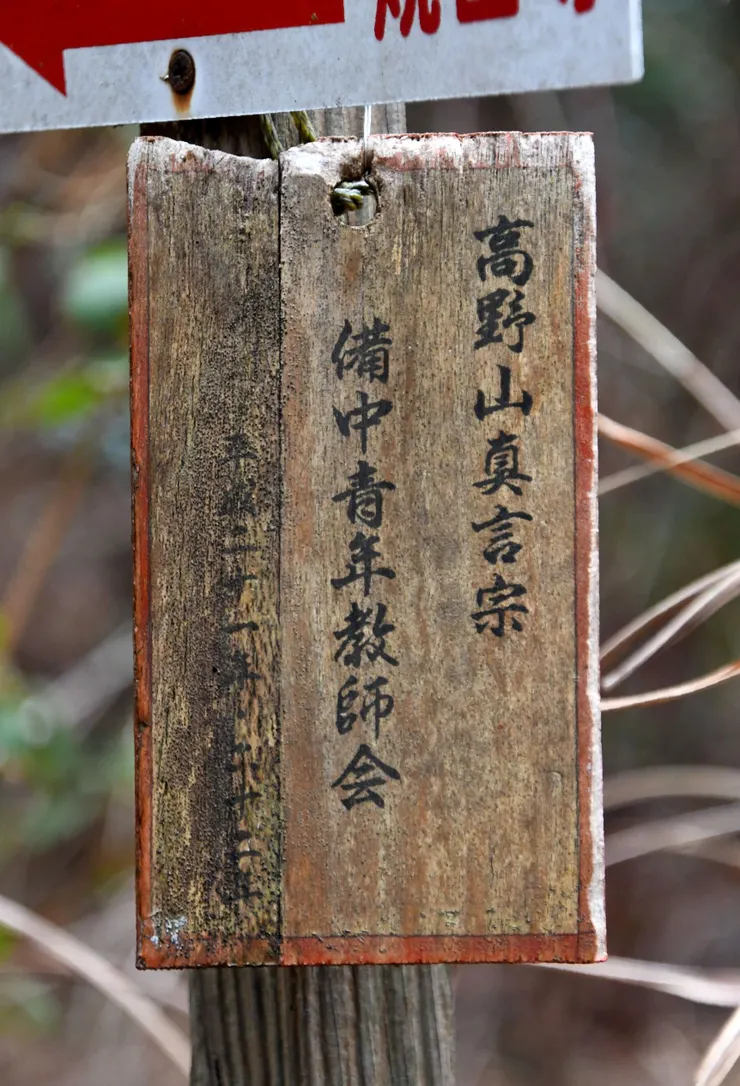 高野山真言宗
備中青年教師会
平成二十一年・二十二年